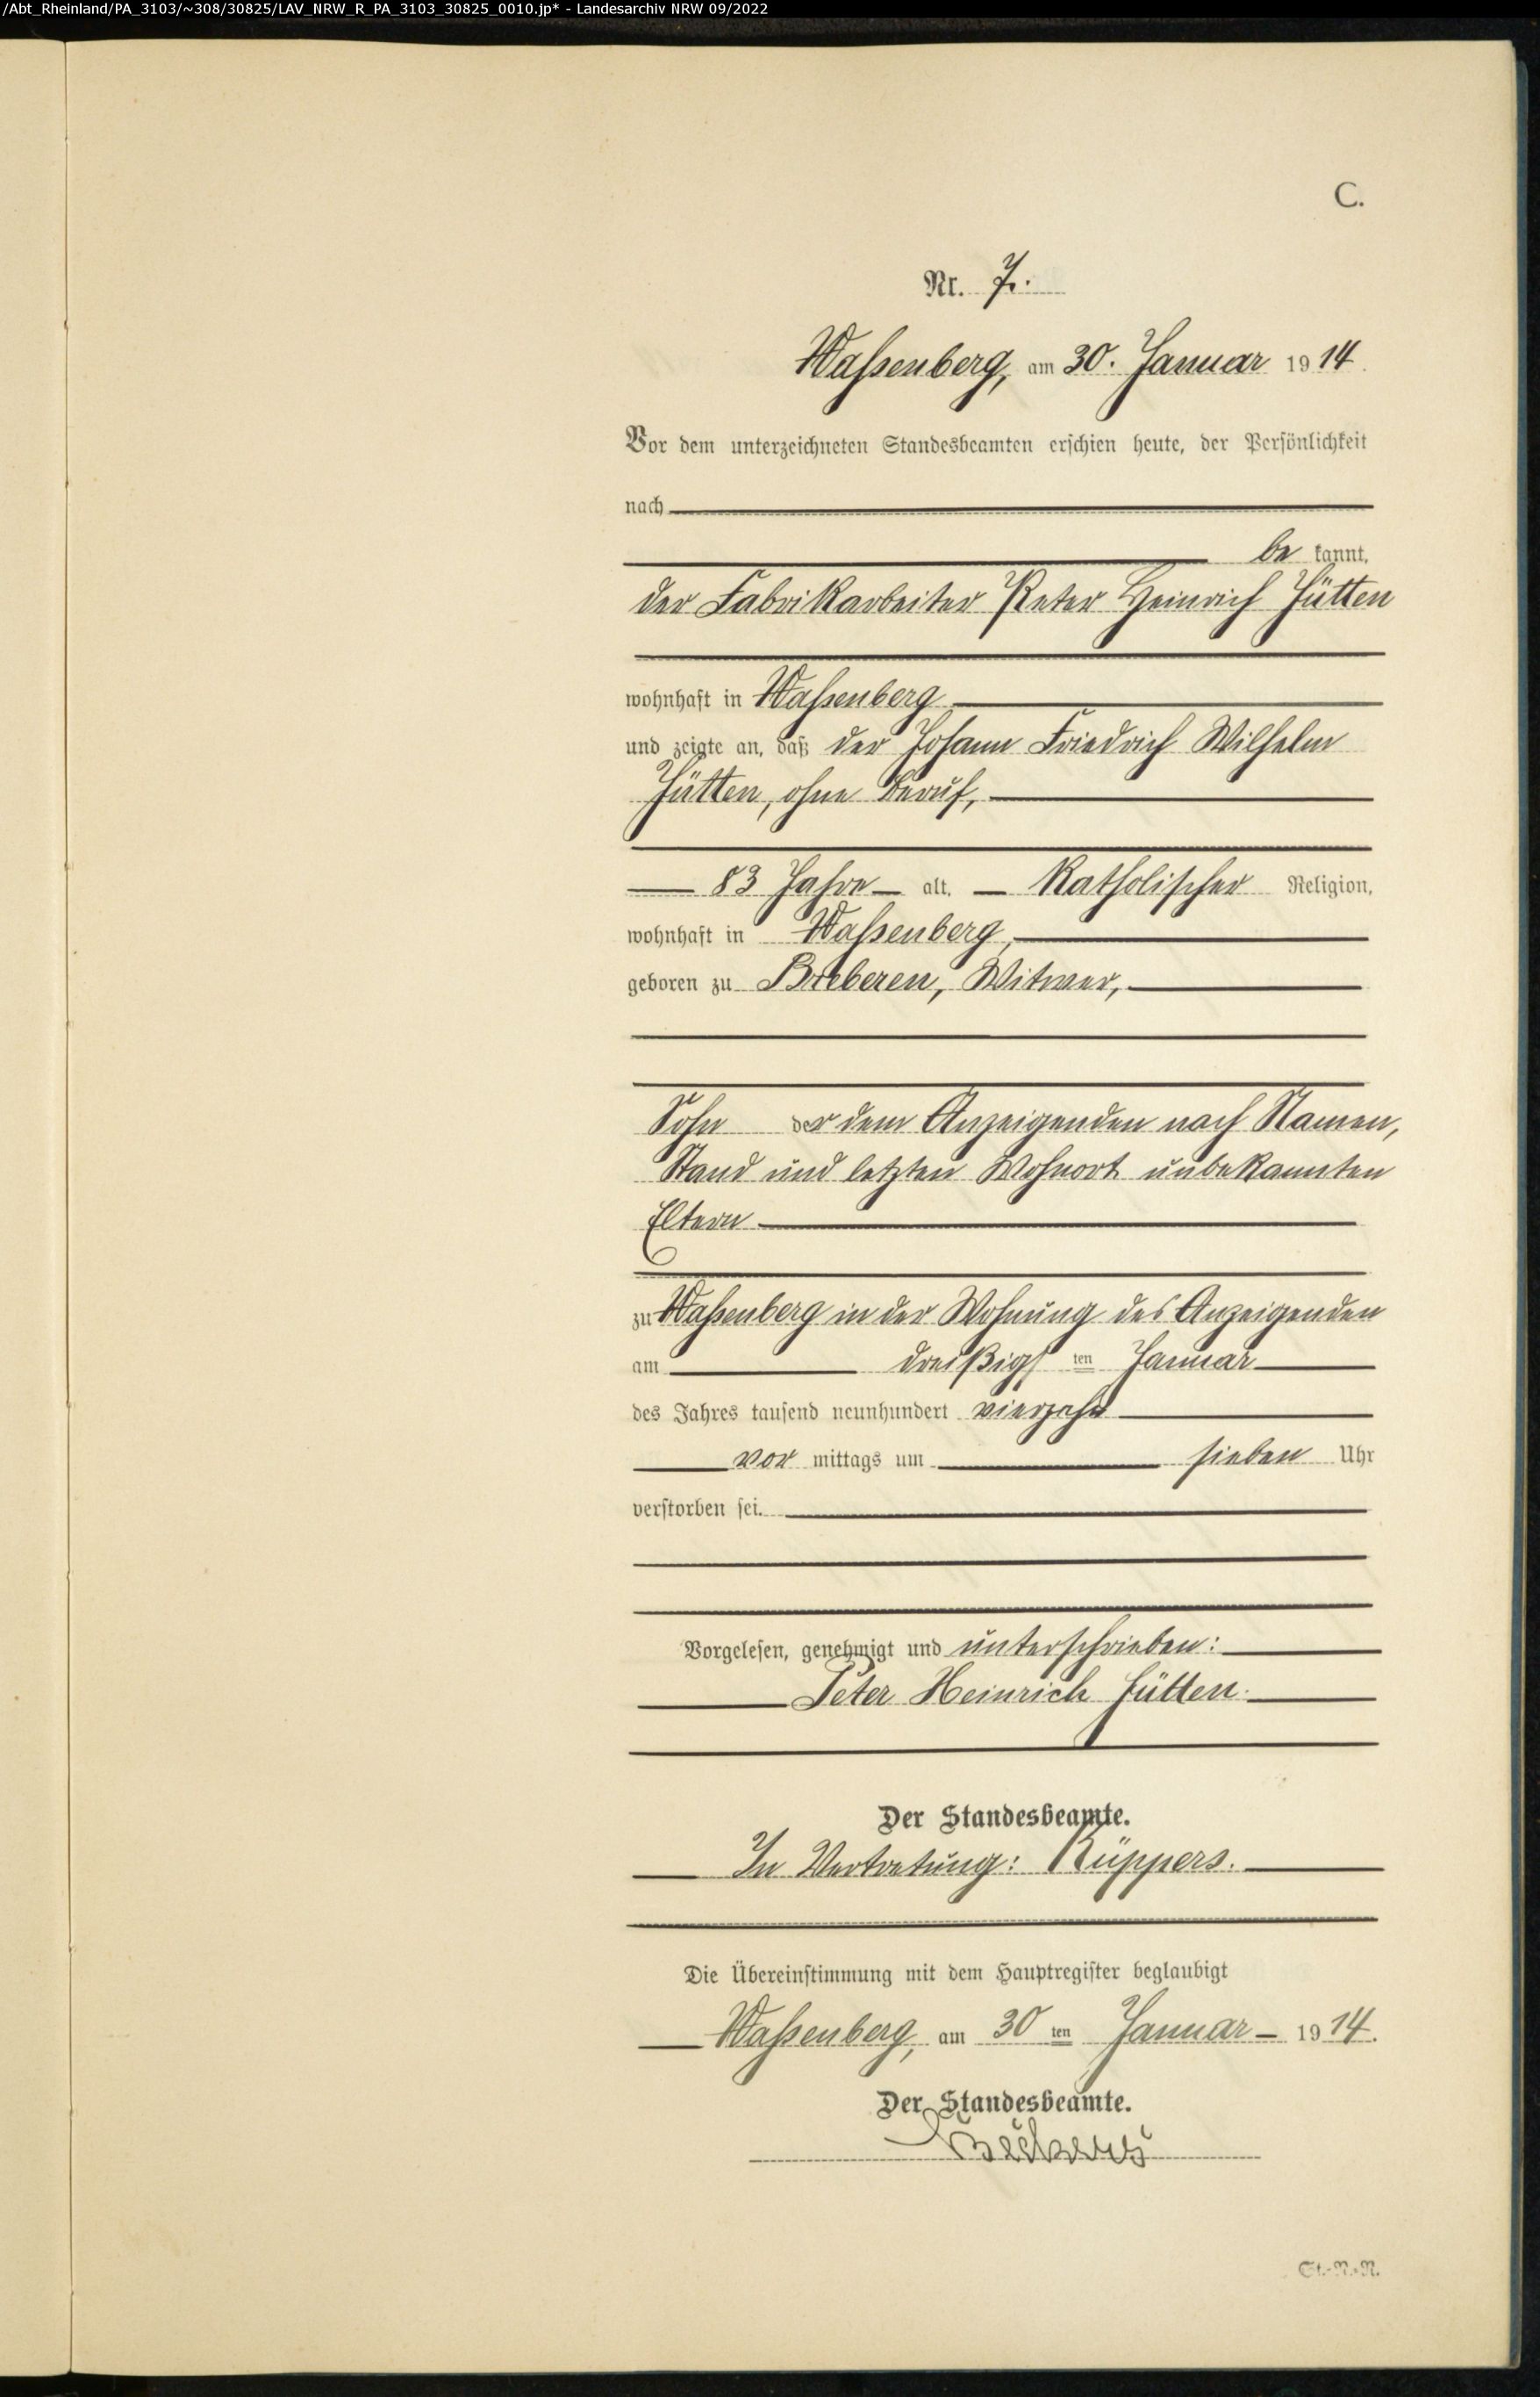 /Abt_Rheinland/PA_3103/~308/30825/LAV_NRW_R_PA_3103_30825_0010.jp* - Landesarchiv NRW 09/2022
C.
Nr. 7.
Wassenberg, am 30. Januar 1914.
Vor dem unterzeichneten Standesbeamten erschien heute, der Persönlichkeit
nach
be kannt,
der Fabrikarbeiter Peter Heinrich Jütten
wohnhaft in Wassenberg
und zeigte an, daß der Johann Friedrich Wilhelm
Jütten, ohne Beruf,
83 Jahre alt, Katholischer Religion,
wohnhaft in Wassenberg,
geboren zu Breberen, Witwer,
Sohn der dem Anzeigenden nach Namen,
Stand und letzten Wohnort unbekannten
Eltern
zu Wassenberg in der Wohnung des Anzeigenden
am dreißigsten Januar
des Jahres tausend neunhundert vierzehn
vor mittags um sieben Uhr
verstorben sei.
Vorgelesen, genehmigt und unterschrieben:
Peter Heinrich Jütten.
Der Standesbeamte.
In Vertretung: Küppers.
Die Übereinstimmung mit dem Hauptregister beglaubigt
Wassenberg, am 30 ten Januar 1914.
Der Standesbeamte.